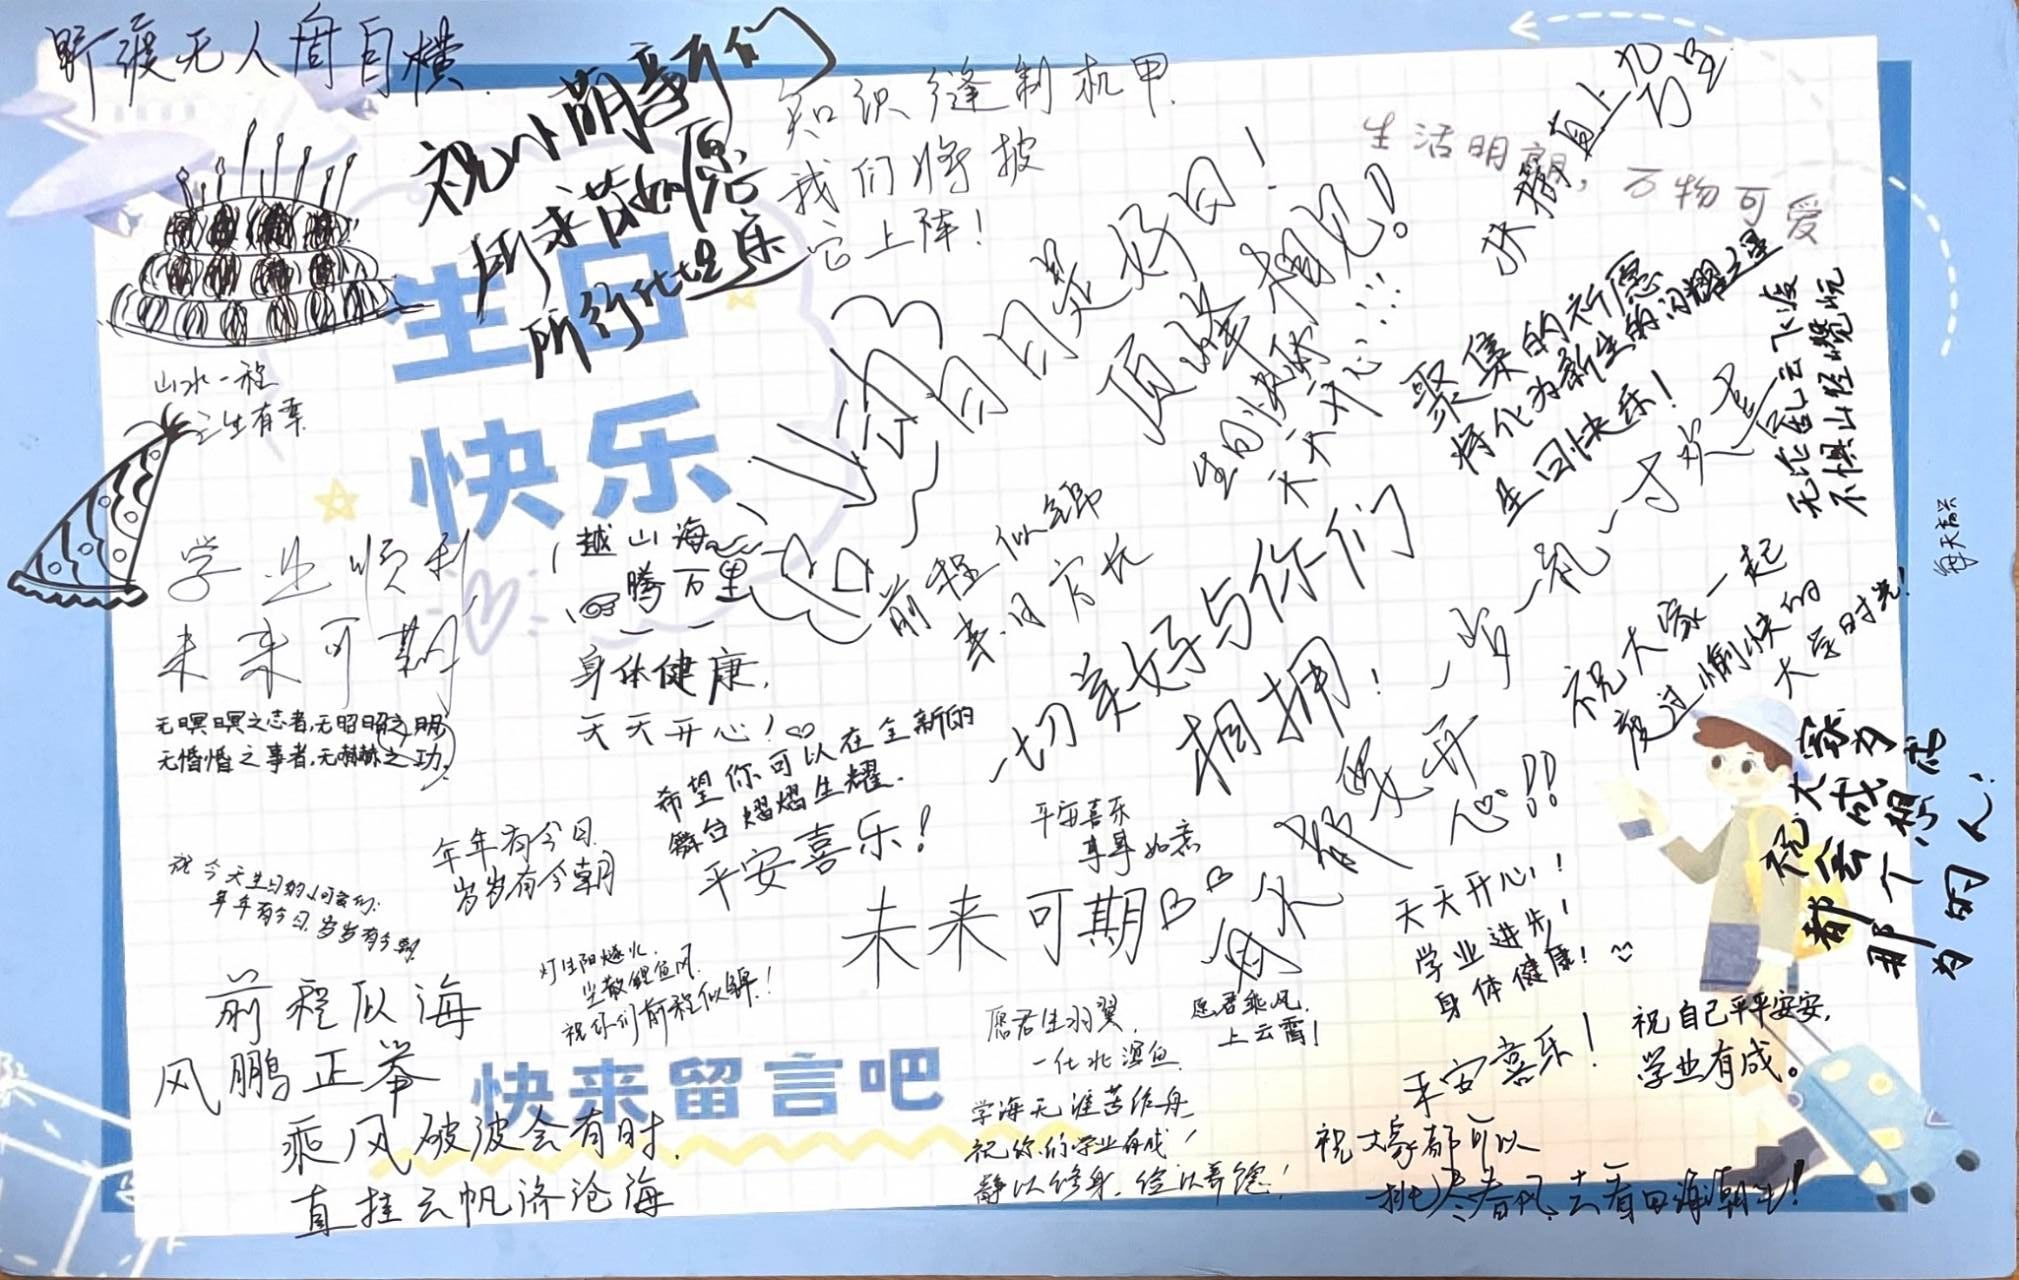 野渡无人舟自横.
祝小萌哥们
所求皆如愿
所行化坦乐
知识缝制机甲.
我们将披
它上阵!
生活明朗, 万物可爱
扶摇直上九万里
生日
快乐
山水一程
三生有幸
日日是好日!
顶峰相见!
生日快乐
天天开心!!!
聚集的祈愿
将化为新生的闪耀之星
生日快乐!
无论乱云飞渡
不惧山怪嶙峋
每天高兴
学业顺利
未来可期
越山海
腾万里
身体健康,
天天开心!
前程似锦
来日方长
一切美好与你们
相拥!
祝大家一起
度过愉快的
大学时光!
祝大家多
会成为
都 个想成
那 为的人!
无暝暝之志者,无昭昭之明
无惛惛之事者,无赫赫之功.
希望你可以在全新的
舞台熠熠生耀.
平安喜乐!
年年有今日
岁岁有今朝
祝今天生日的小可爱们:
年年有今日,岁岁有今朝
平安喜乐
事事如意
未来可期
每天都要开心!!
天天开心!
学业进步!
身体健康!
前程似海
风鹏正举
乘风破浪会有时.
直挂云帆济沧海
祝你们前程似锦!
快来留言吧
愿君生羽翼,
一化北溟鱼.
愿君乘风,
上云霄!
学海无涯苦作舟
祝你们学业有成!
静以修身,俭以养德!
平安喜乐!
祝自己平平安安,
学业有成。
祝大家都可以
挑尽春风,去看日海潮生!